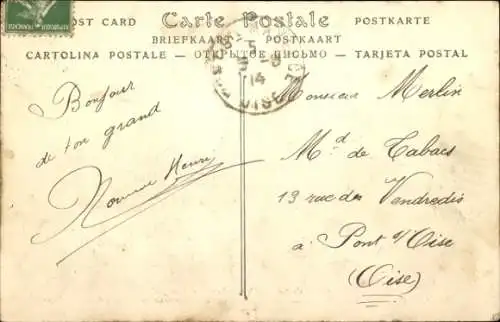 POST CARD Carte Postale POSTKARTE
BRIEFKAART - POSTKAART
CARTOLINA POSTALE - ОТКРЫТОЕ ПИСЬМО - TARJETA POSTAL
14
OISE
Bonjour
de ton grand
Henri
Monsieur Merlin
Md de Tabacs
13 rue des Vendredis
à Pont s/Oise
(Oise)